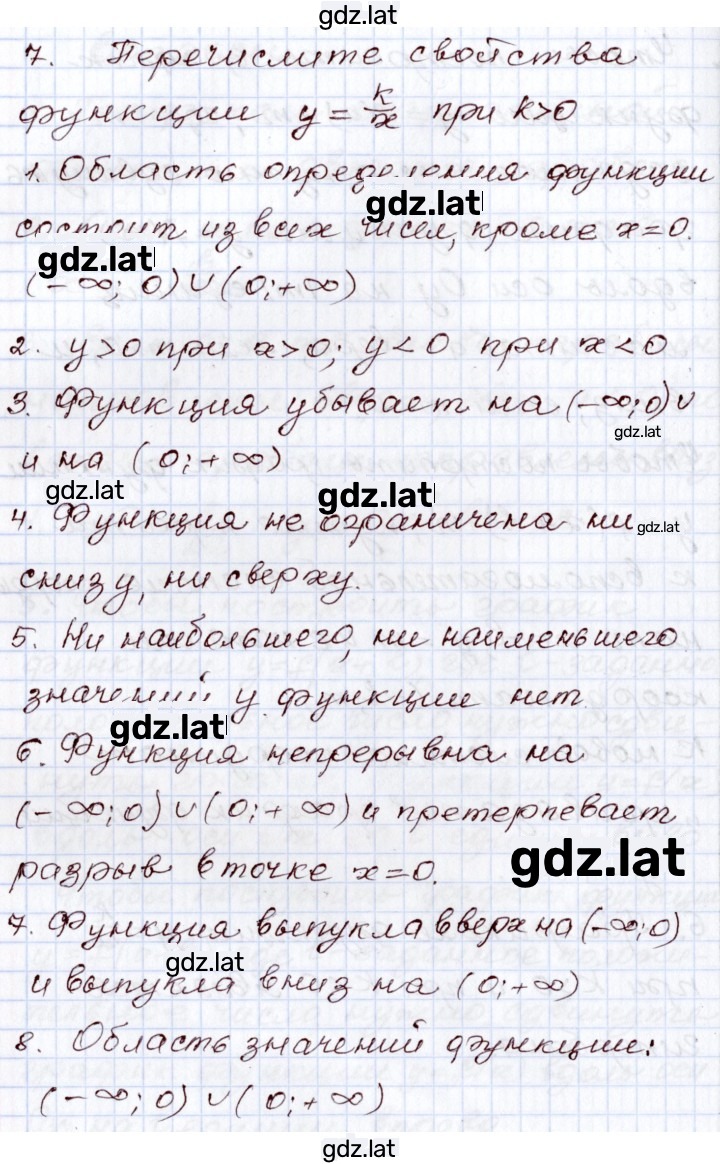 gdz.lat
7. Перечислите свойства
функции y = k/x при k>0
1. Область определения функции
gdz.lat
состоит из всех чисел, кроме x=0.
gdz.lat
(-∞; 0) ∪ (0; +∞)
2. y>0 при x>0; y<0 при x<0
3. Функция убывает на (-∞; 0) ∪
gdz.lat
и на (0; +∞)
gdz.lat gdz.lat
4. Функция не ограничена ни gdz.lat
снизу, ни сверху.
5. Ни наибольшего, ни наименьшего
значений у функции нет.
gdz.lat
6. Функция непрерывна на
(-∞; 0) ∪ (0; +∞) и претерпевает
разрыв в точке x=0.
gdz.lat
7. Функция выпукла вверх на (-∞; 0)
gdz.lat
и выпукла вниз на (0; +∞)
8. Область значений функции:
(-∞; 0) ∪ (0; +∞)
gdz.lat